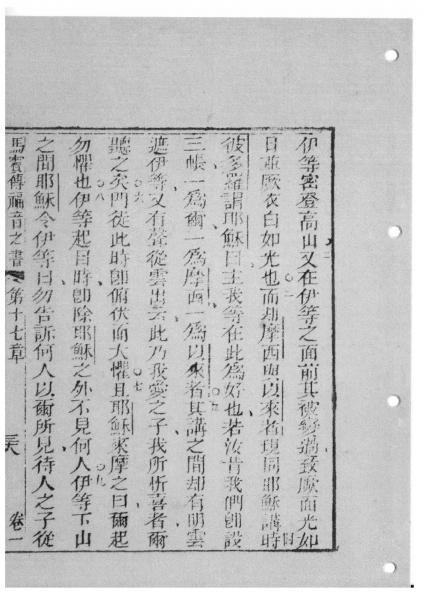 伊等密登高山又在伊等之面前其被變過致厥面光如
日並厥衣白如光也而却摩西與以來者現同耶穌講時
彼多羅謂耶穌曰主我等在此為好也若汝肯我們即設
三帳一為爾一為摩西一為以來者其講之間却有明雲
遮伊等又有聲從雲出云此乃我愛之子我所忻喜者爾
聽之矣門徒此時即俯伏而大懼且耶穌來摩之曰爾起
勿懼也伊等起目時即除耶穌之外不見何人伊等下山
之間耶穌令伊等曰勿告訴何人以爾所見待人之子從
馬竇傳福音之書 第十七章 卷一